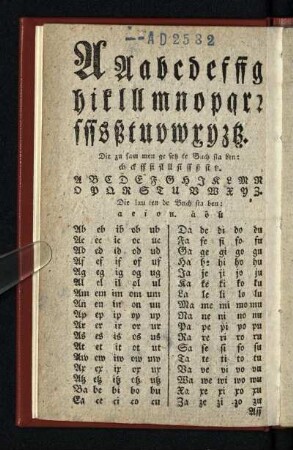 AD2532
A Aabcdefffg
hiklllmnopqrr
ſſſsßtuvwxyztz.
Die zu ſam men ge ſetz te Buch ſta ben:
A B C D E F G H I K L M N
O P Q R S T U V W X Y Z.
Die lau ten de Buch ſta ben:
a e i o u. ä ö ü
Ab eb ib ob ub
Ac ec ic oc uc
Ad ed id od ud
Af ef if of uf
Ag eg ig og ug
Al el il ol ul
Am em im om um
An en in on un
Ap ep ip op up
Ar er ir or ur
As es is os us
At et it ot ut
Aw ew iw ow uw
Ax ex ix ox ux
Atz etz itz otz utz
Ba be bi bo bu
Ca ce ci co cu
Da de di do du
Fa fe fi fo fu
Ga ge gi go gu
Ha he hi ho hu
Ja je ji jo ju
Ka ke ki ko ku
La le li lo lu
Ma me mi mo mu
Na ne ni no nu
Pa pe pi po pu
Ra re ri ro ru
Sa ſe ſi ſo ſu
Ta te ti to tu
Va ve vi vo vu
Wa we wi wo wu
Xa xe xi xo xu
Za ze zi zo zu
Aſſ